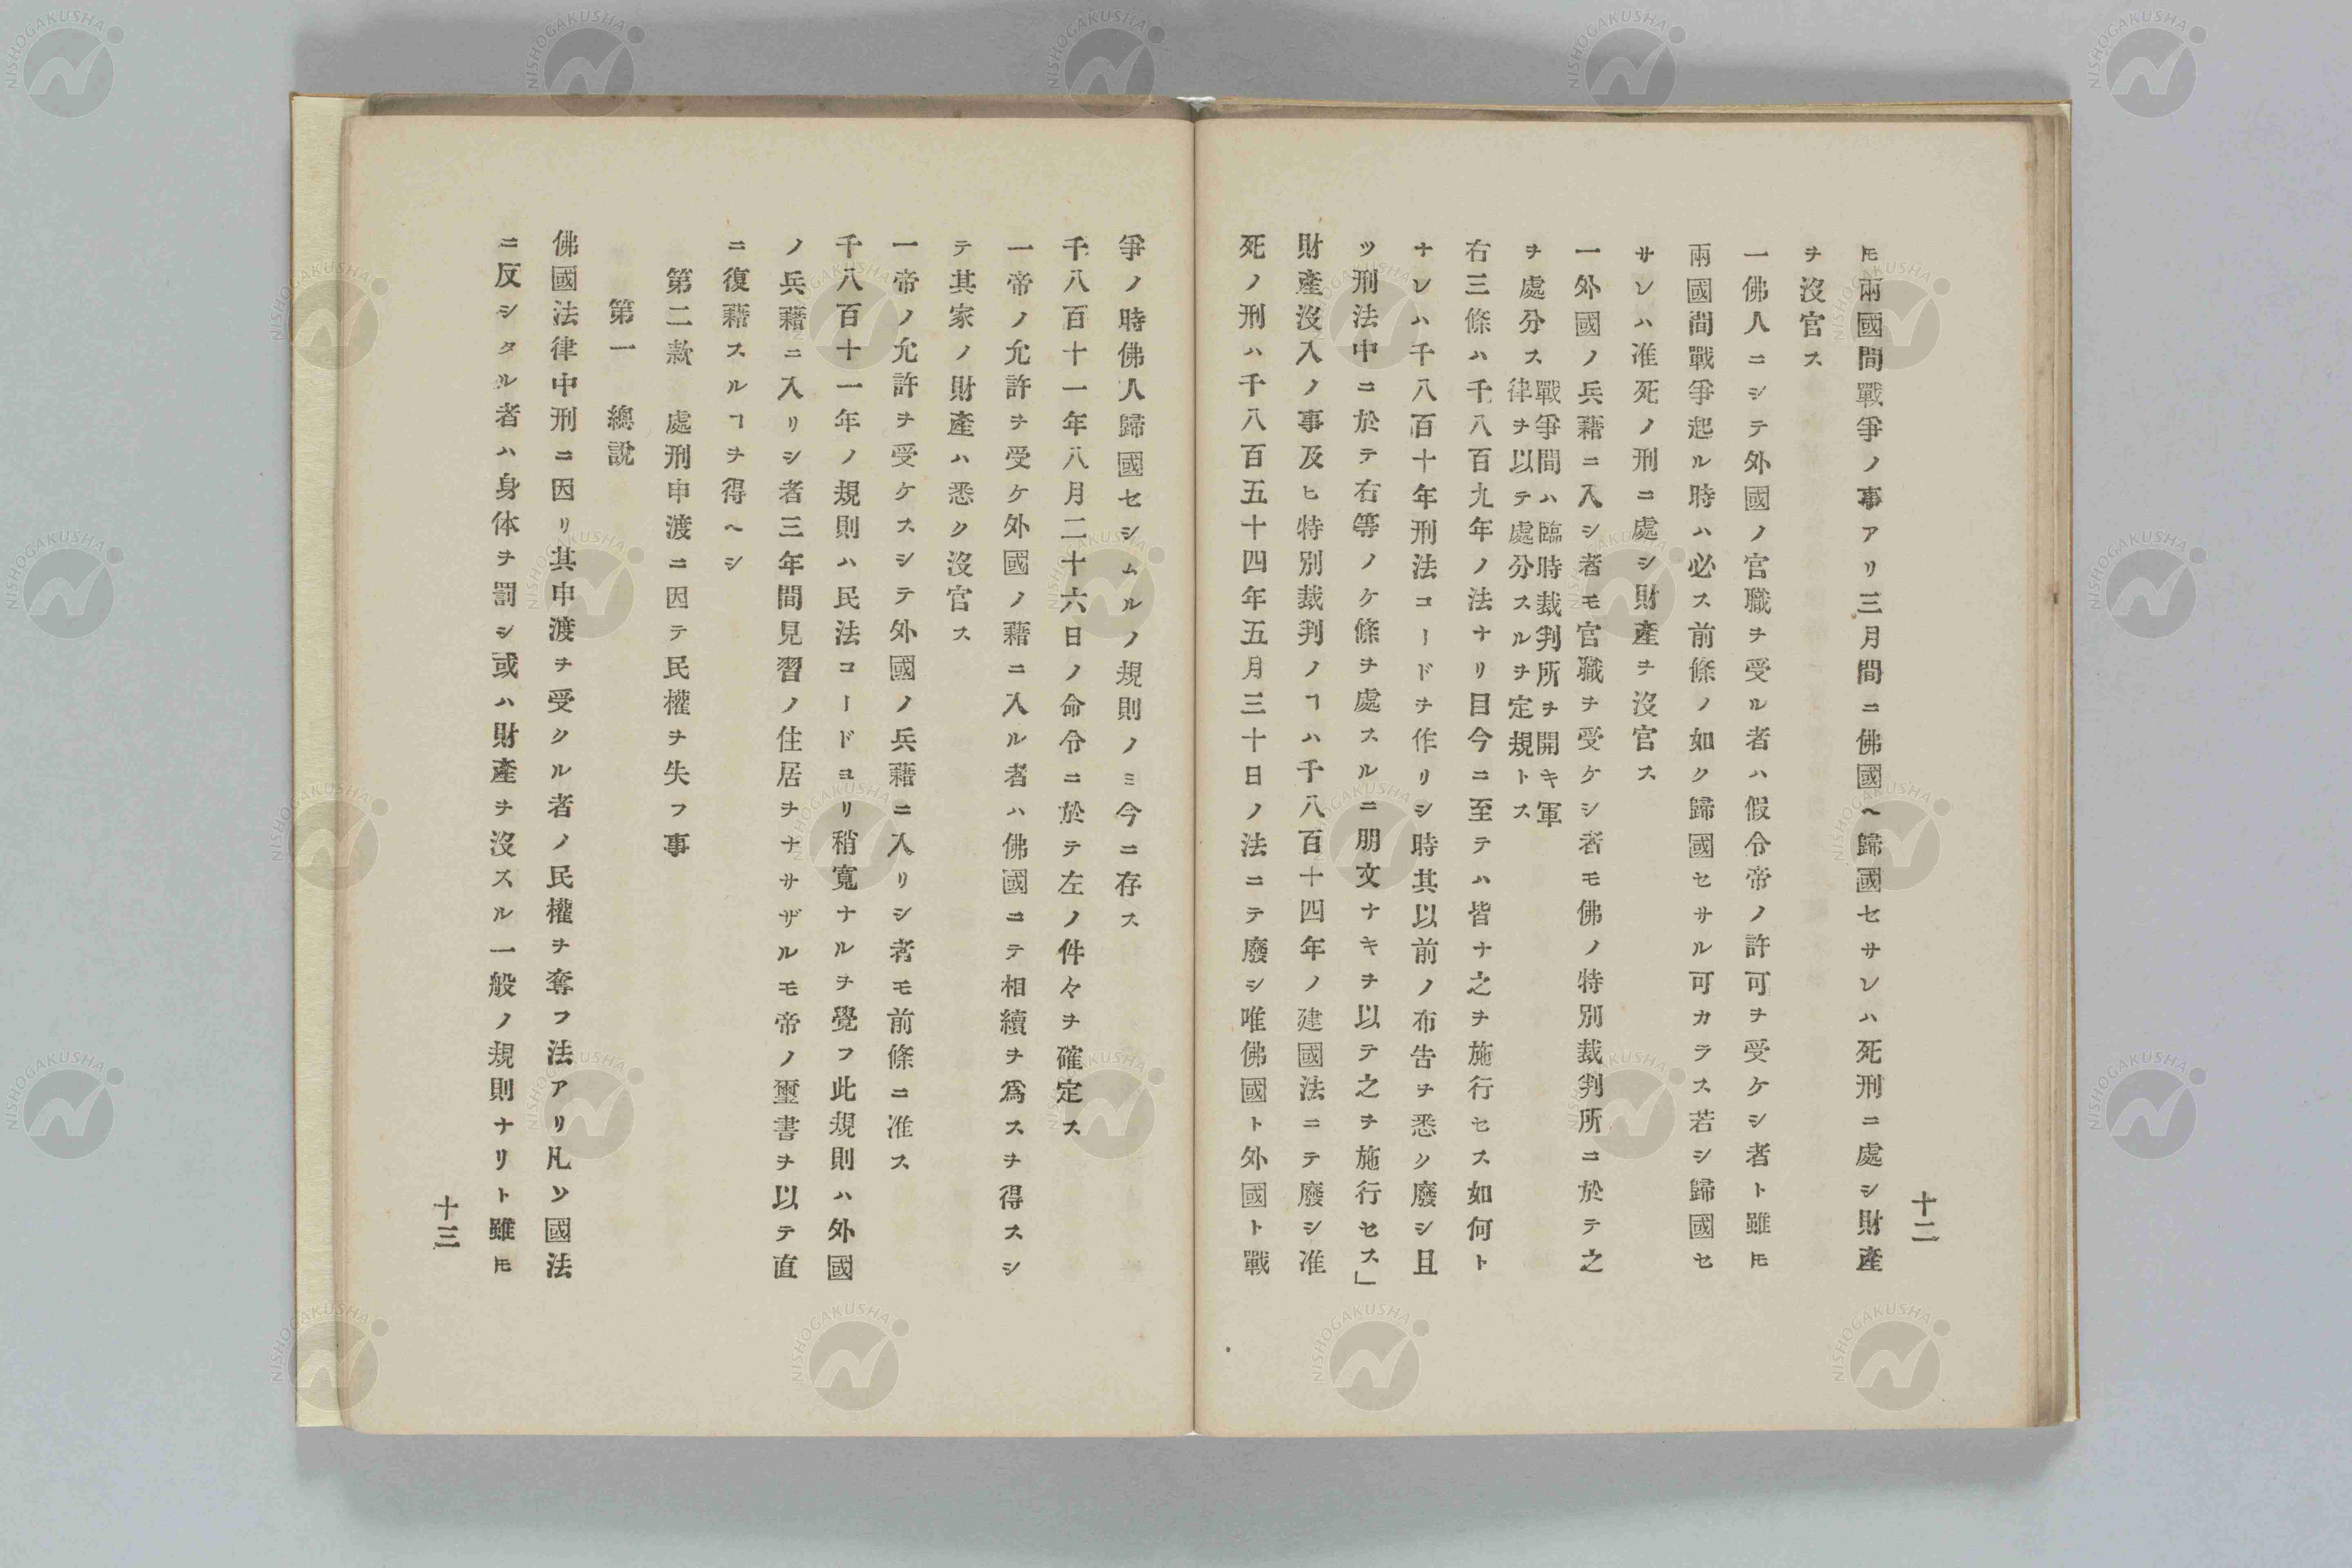 十二
𪜈兩國間戰爭ノ事アリ三月間ニ佛國ヘ歸國セサレハ死刑ニ處シ財產
ヲ沒官ス
一佛人ニシテ外國ノ官職ヲ受ル者ハ假令帝ノ許可ヲ受ケシ者ト雖𪜈
兩國間戰爭起ル時ハ必ス前條ノ如ク歸國セサル可カラス若シ歸國セ
サレハ准死ノ刑ニ處シ財產ヲ沒官ス
一外國ノ兵藉ニ入シ者モ官職ヲ受ケシ者モ佛ノ特別裁判所ニ於テ之
ヲ處分ス
戰爭間ハ臨時裁判所ヲ開キ軍
律ヲ以テ處分スルヲ定規トス
右三條ハ千八百九年ノ法ナリ目今ニ至テハ皆ナ之ヲ施行セス如何ト
ナレハ千八百十年刑法コードヲ作リシ時其以前ノ布告ヲ悉ク廢シ且
ツ刑法中ニ於テ右等ノケ條ヲ處スルニ朋文ナキヲ以テ之ヲ施行セス」
財產沒入ノ事及ヒ特別裁判ノヿハ千八百十四年ノ建國法ニテ廢シ准
死ノ刑ハ千八百五十四年五月三十日ノ法ニテ廢シ唯佛國ト外國ト戰
爭ノ時佛人歸國セシムルノ規則ノミ今ニ存ス
千八百十一年八月二十六日ノ命令ニ於テ左ノ件々ヲ確定ス
一帝ノ允許ヲ受ケ外國ノ藉ニ入ル者ハ佛國ニテ相續ヲ爲スヲ得スシ
テ其家ノ財產ハ悉ク沒官ス
一帝ノ允許ヲ受ケスシテ外國ノ兵藉ニ入リシ者モ前條ニ准ス
千八百十一年ノ規則ハ民法コードヨリ稍寬ナルヲ覺フ此規則ハ外國
ノ兵藉ニ入リシ者三年間見習ノ住居ヲナサザルモ帝ノ璽書ヲ以テ直
ニ復藉スルヿヲ得ヘシ
第二款 處刑申渡ニ因テ民權ヲ失フ事
第一 總說
佛國法律中刑ニ因リ其申渡ヲ受クル者ノ民權ヲ奪フ法アリ凡ソ國法
ニ反シタル者ハ身体ヲ罰シ或ハ財產ヲ沒スル一般ノ規則ナリト雖𪜈
十三